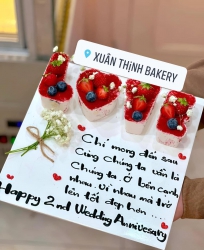 XUÂN THỊNH BAKERY
Chỉ mong đến sau
Cùng chúng ta vẫn là
Chúng ta. Ở bên cạnh
nhau. Vì nhau mà trở
nên tốt đẹp hơn ...
Happy 2nd Wedding Anniversary